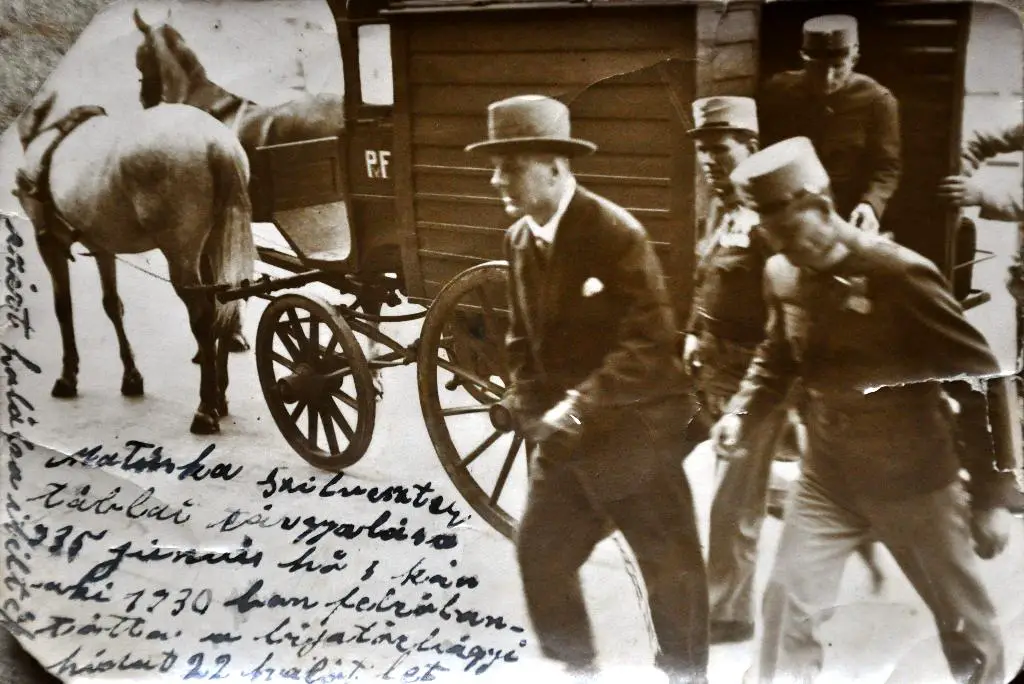 P.F.
Matuska Szilveszter
táblai tárgyalása
935 június hó 5 kán
aki 1930 ban felrobban-
totta a biatorbágyi
hidat 22 halot let
halálra itéltek